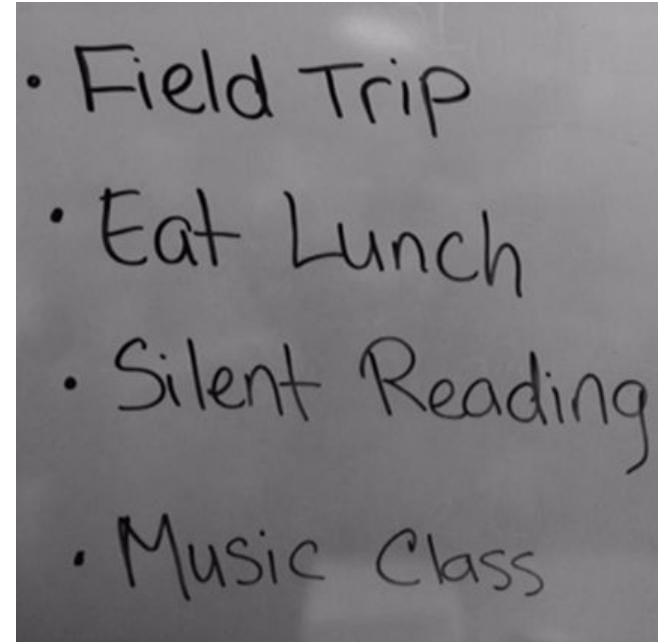 • Field Trip
• Eat Lunch
• Silent Reading
• Music Class